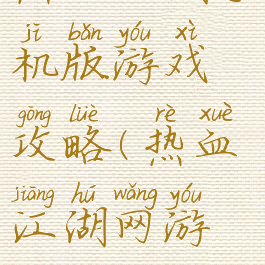 jī bǎn yóu xì
机版游戏
gōng lüè rè xuè
攻略(热血
jiāng hú wǎng yóu
江湖网游